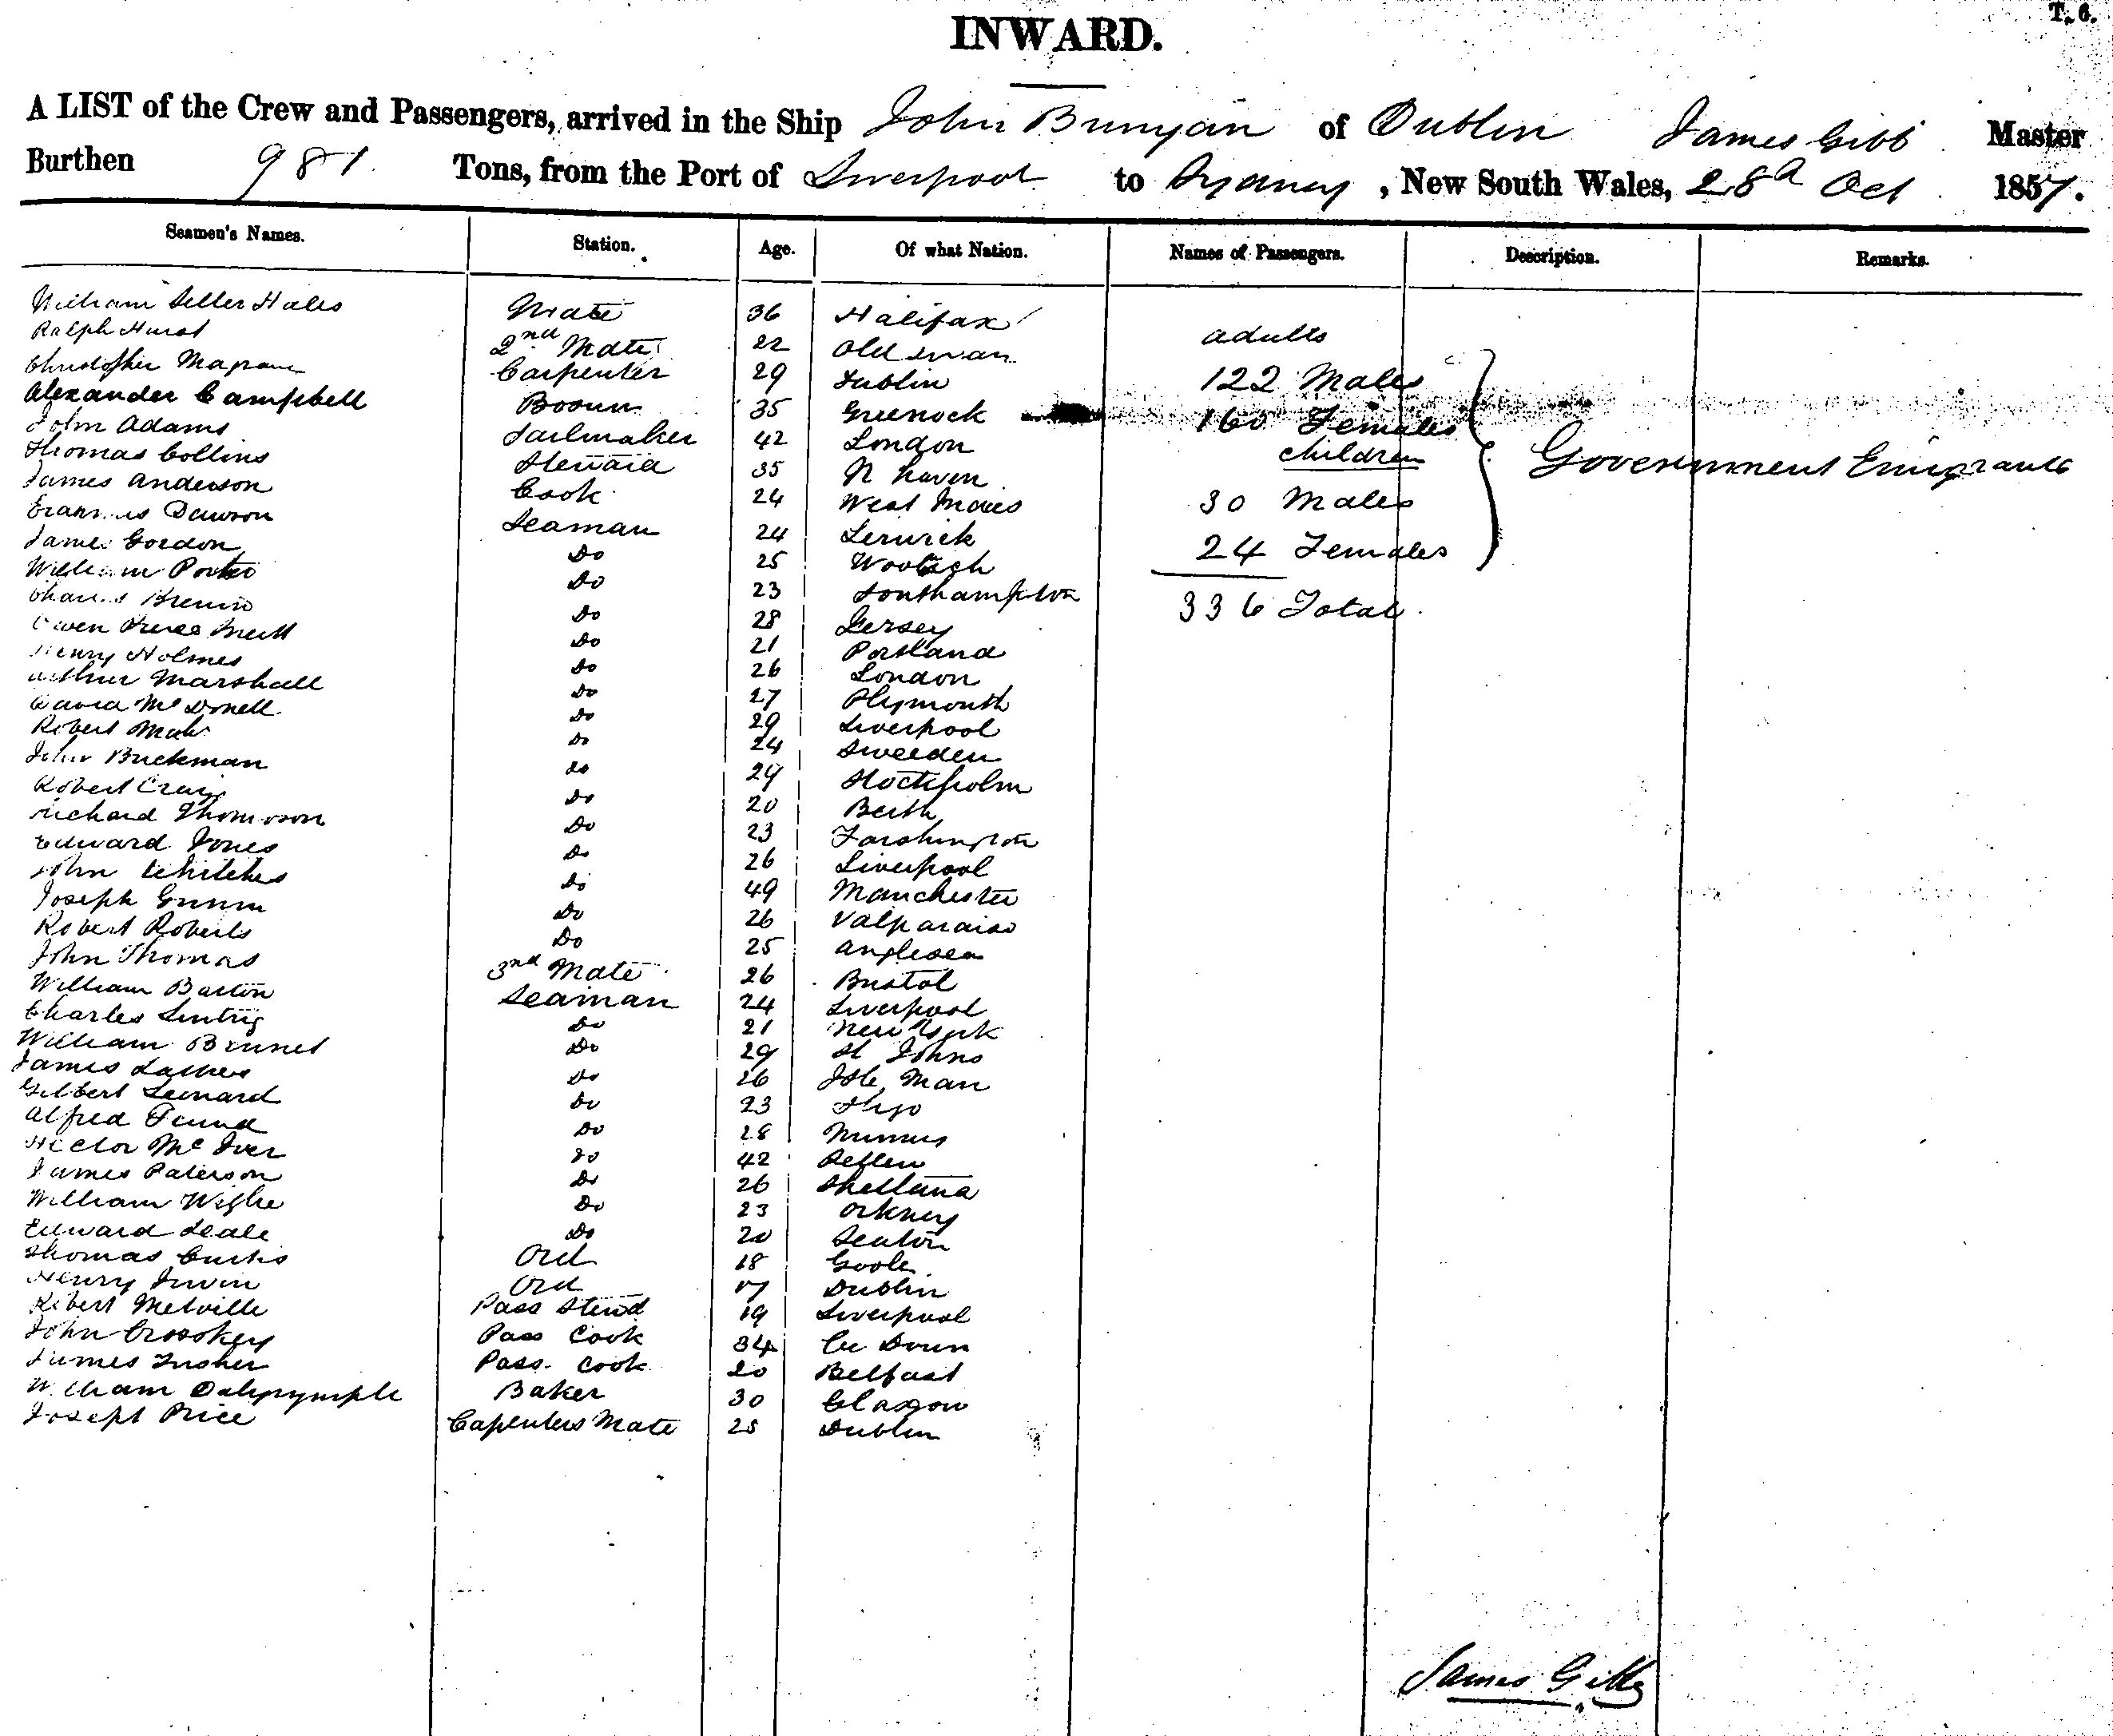 T. 6.
INWARD.
A LIST of the Crew and Passengers, arrived in the Ship John Bunyan of Dublin James Gibb Master
Burthen 981 Tons, from the Port of Liverpool to Sydney, New South Wales, 28th Oct 1857.
Seamen's Names. Station. Age. Of what Nation. Names of Passengers. Description. Remarks.
William Seller Hales Mate 36 Halifax
Ralph Hurst 2nd Mate 22 Old Swan adults
Christopher Carpenter 29 Dublin 122 Males
Alexander Campbell Bosun 35 Greenock 160 Females
John Adams Sailmaker 42 London children
Thomas Collins Steward 35 N haven Government Emigrants
James Anderson Cook 24 West Indies 30 Males
Dawson Seaman 24 Lerwick 24 Females
James Gordon Do 25 336 Total
William Porter Do 23 Southampton
Do 28 Jersey
Owen Do 21 Portland
Henry Holmes Do 26 London
Arthur Marshall Do 27 Plymouth
David McDonell Do 29 Liverpool
Robert Do 24 Sweeden
John Buckman Do 29 Stockholm
Robert Craig Do 20
Richard Thomson Do 23
Edward Jones Do 26 Liverpool
John Do 49 Manchester
Joseph Do 26 Valparaiso
Robert Roberts Do 25 Anglesea
John Thomas 3rd Mate 26 Bristol
William Barton Seaman 24 Liverpool
Charles Do 21 New York
William Bennet Do 29 St Johns
James Do 26 Isle Man
Gilbert Leonard Do 23 Sligo
Alfred Do 28
Hector McIver Do 42
James Paterson Do 26 Shetland
William Do 23 Orkney
Edward Seale Do 20 Seaton
Thomas Curtis Ord 18 Goole
Henry Irwin Ord 17 Dublin
Robert Melville Pass Stewd 19 Liverpool
John Crosskey Pass Cook 34 Co Down
James Pass. Cook 20 Belfast
William Dalrymple Baker 30 Glasgow
Joseph Price Capenters Mate 25 Dublin
James Gibb